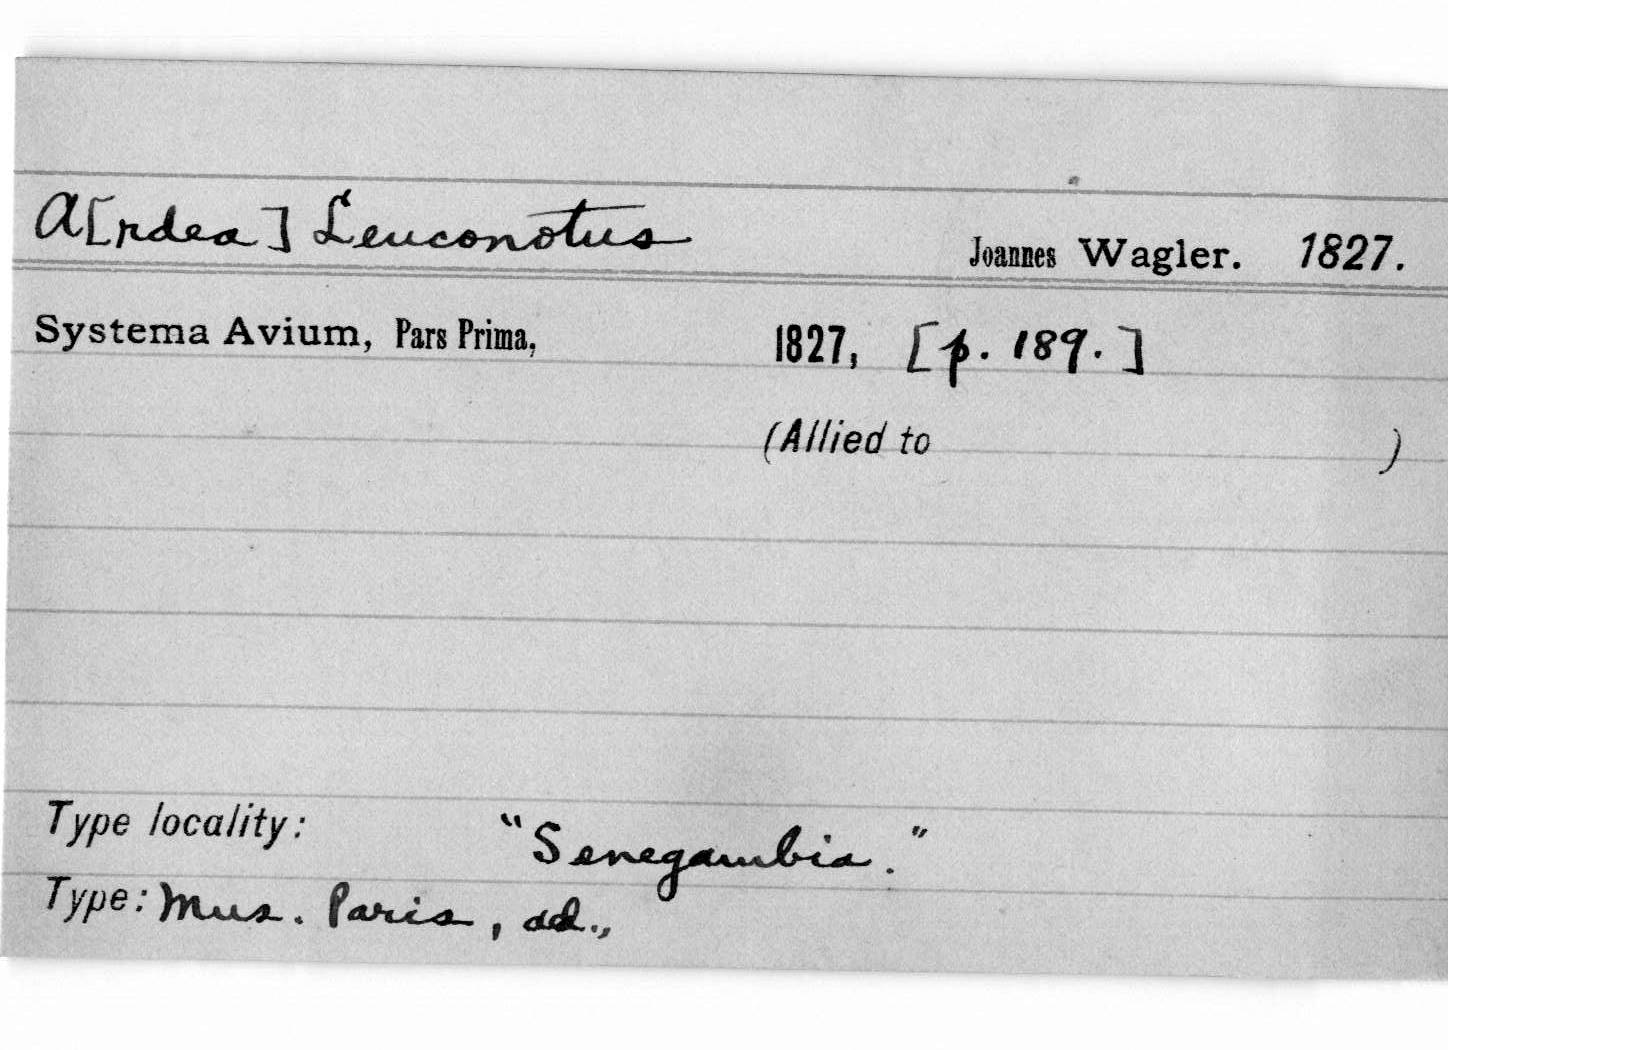 A[rdea] Leuconotus Joannes Wagler. 1827.
Systema Avium, Pars Prima, 1827, [p. 189.]
(Allied to )
Type locality: "Senegambia."
Type: Mus. Paris, ad.,